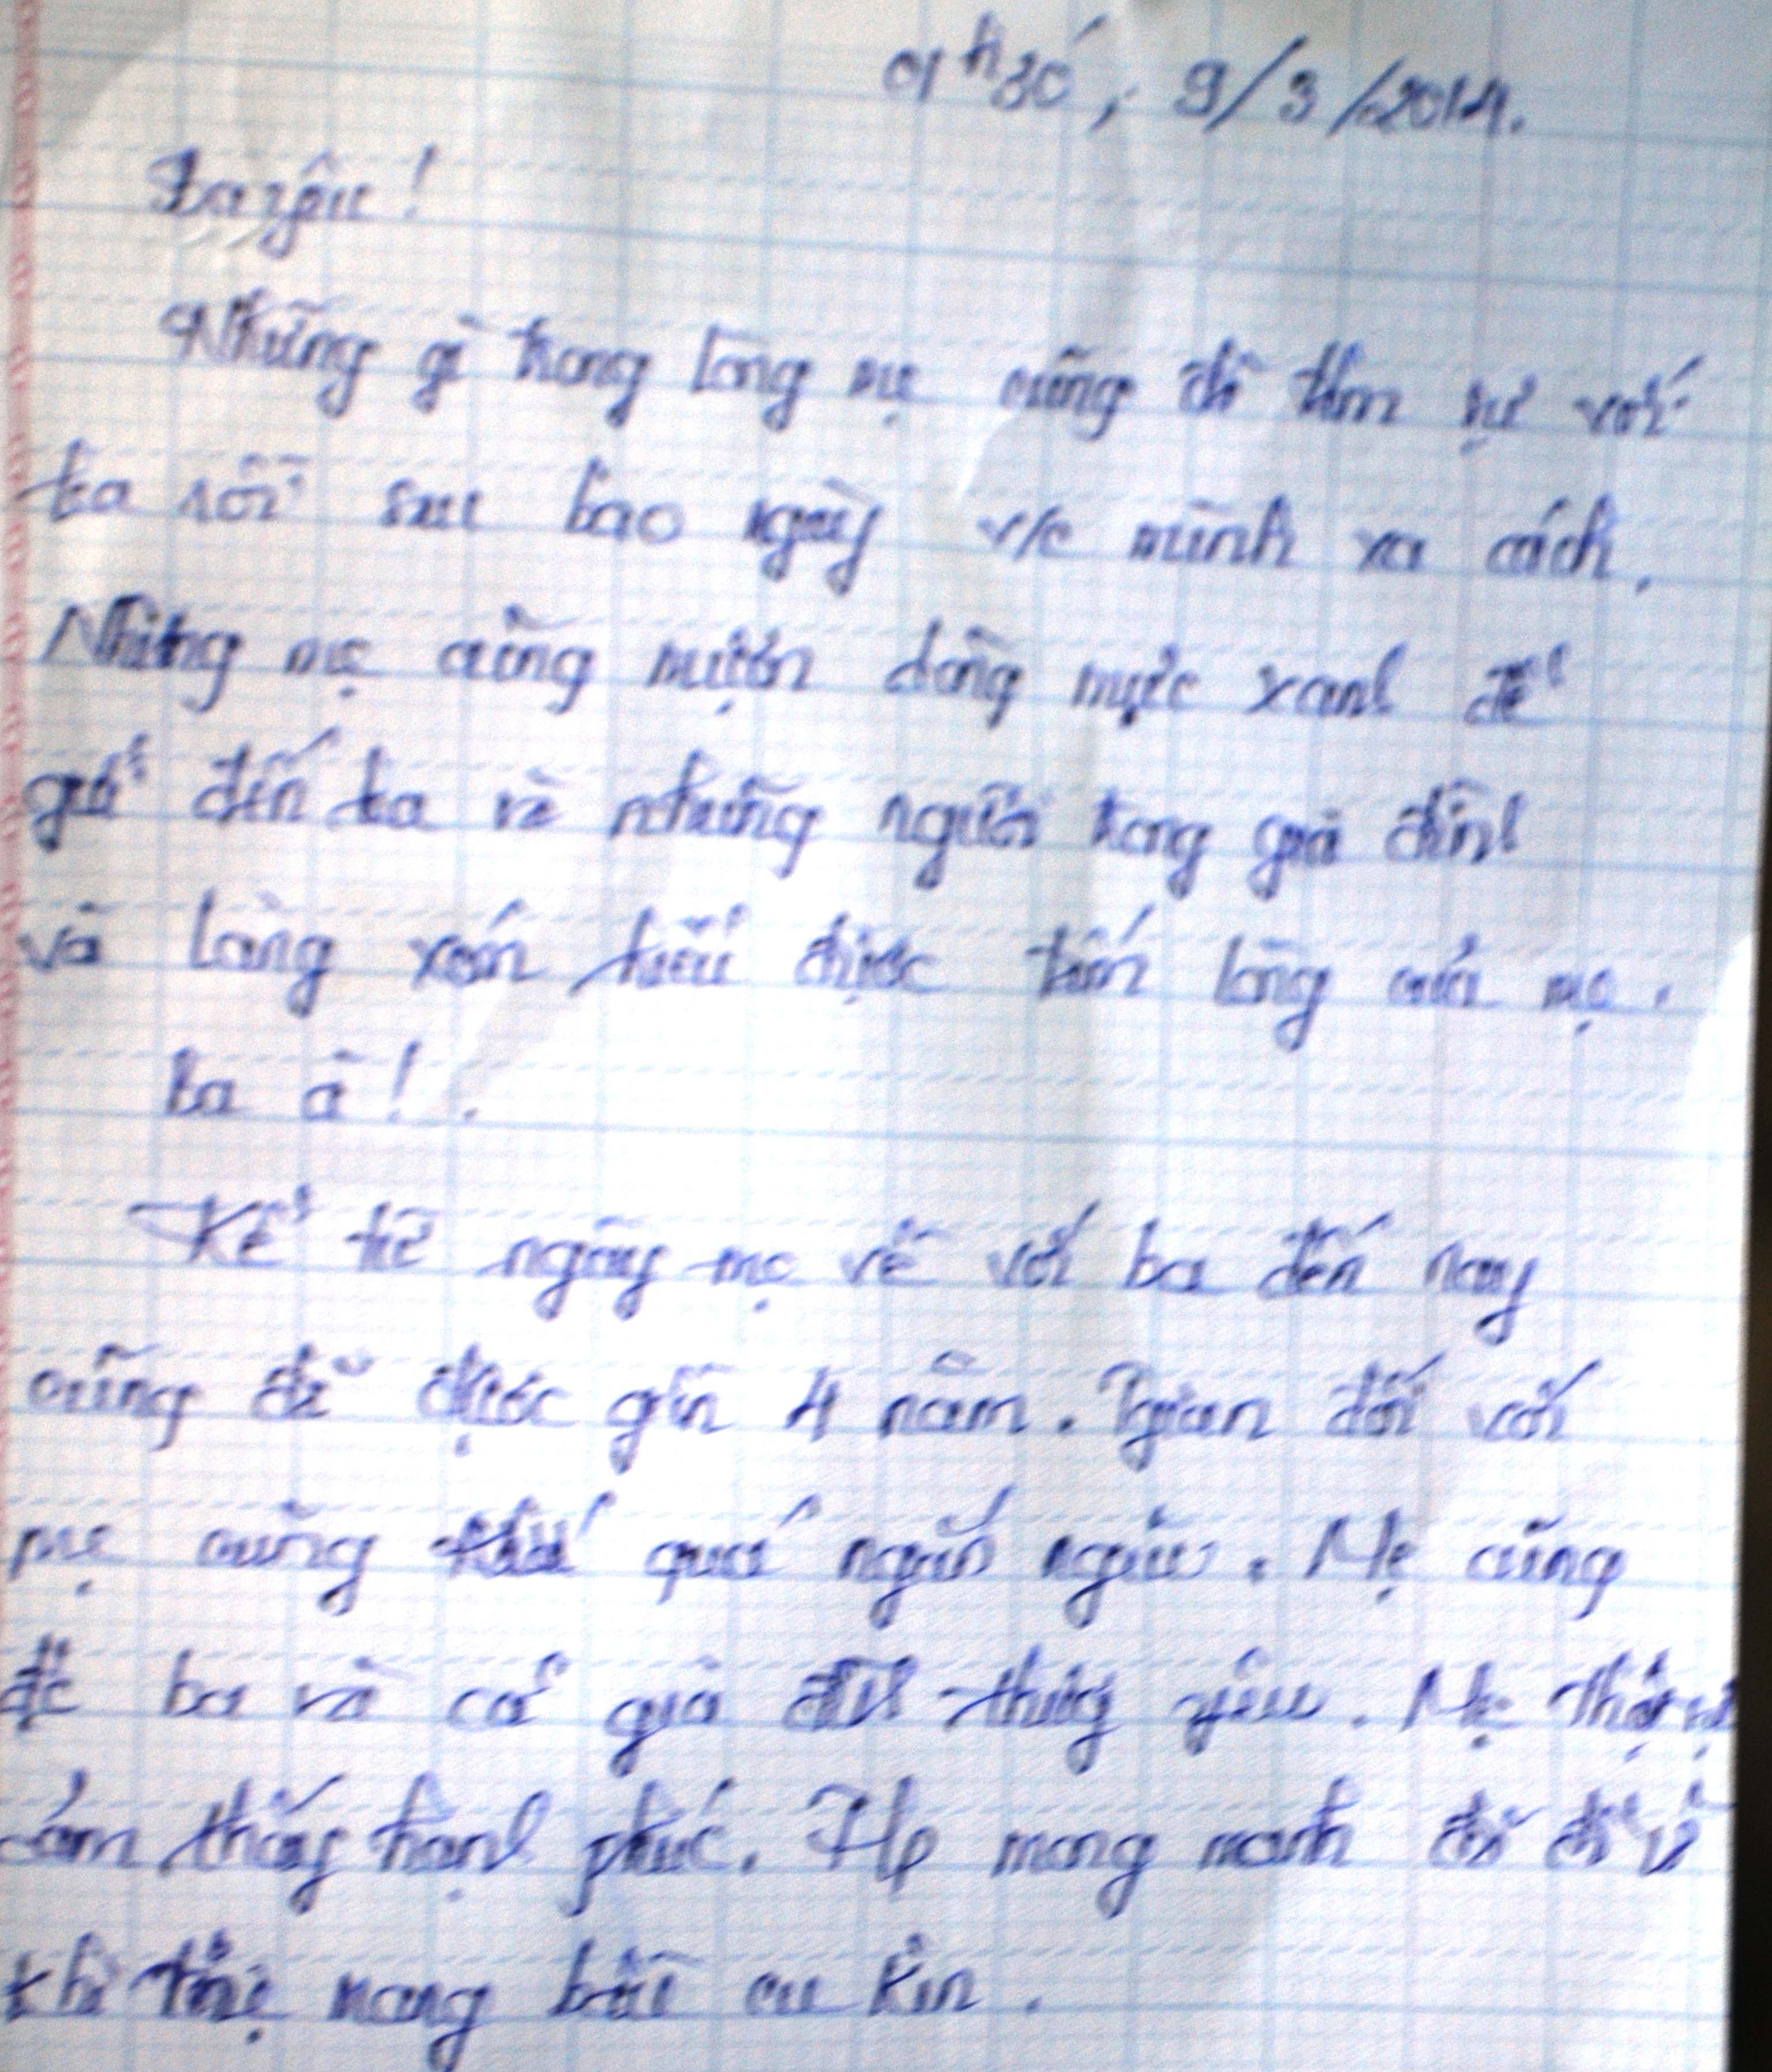 01h30, 9/3/2014.
Ba yêu!
Những gì trong lòng mẹ cũng đã tâm sự với
ba rồi sau bao ngày v/c mình xa cách.
Nhưng mẹ cũng mượn dòng mực xanh để
gửi đến ba và những người trong gia đình
và làng xóm hiểu được tấm lòng của mẹ.
Ba à!.
Kể từ ngày mẹ về với ba đến nay
cũng đã được gần 4 năm. Tgian đối với
mẹ cũng quá ngắn ngủi. Mẹ cũng
đc ba và cả gia đình thương yêu. Mẹ thật sự
cảm thấy hạnh phúc. HP mong manh đó
khi mẹ mang bầu cu Kin.